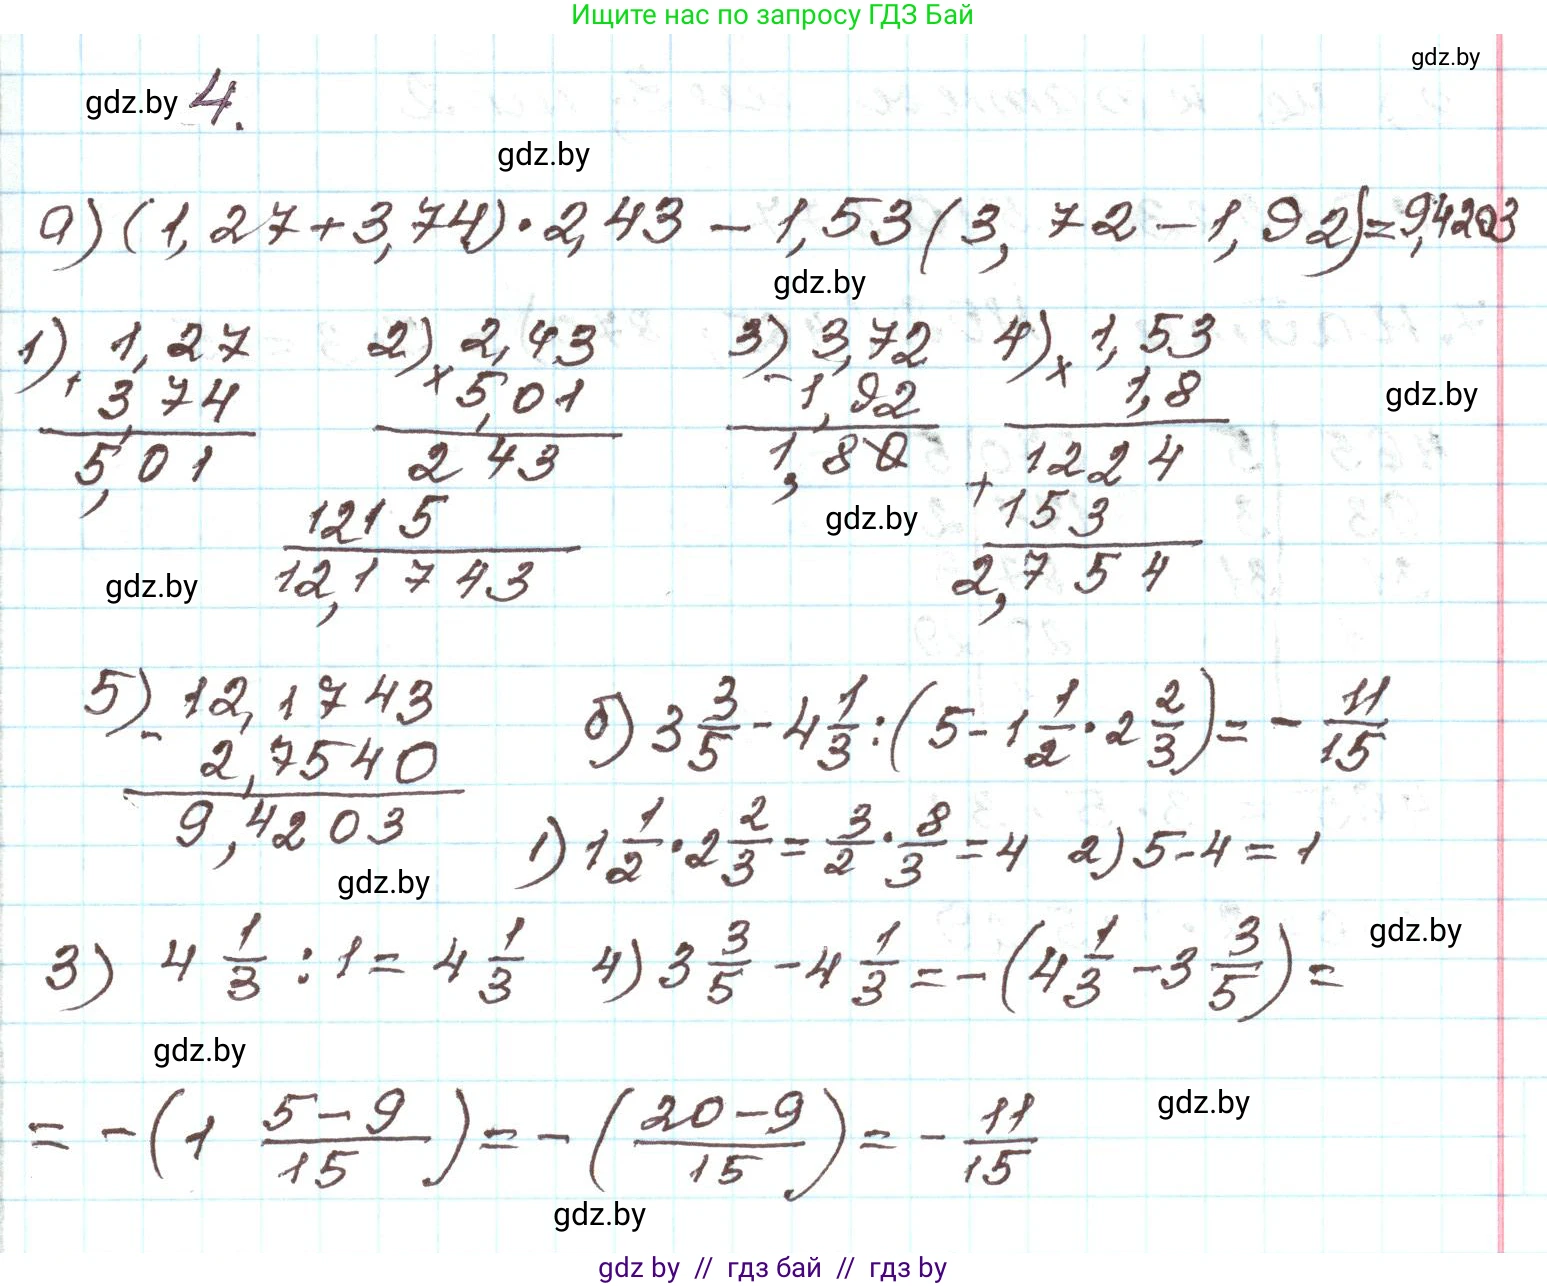 Ищите нас по запросу ГДЗ Бай
gdz.by
gdz.by 4.
gdz.by
а) (1,27+3,74)·2,43 − 1,53(3,72−1,92)=9,4203
gdz.by
1) 1,27 2) 2,43 3) 3,72 4) 1,53
+ 3,74 × 5,01 − 1,92 × 1,8
gdz.by
5,01 243 1,80 1224
1215 + 153
gdz.by
12,1743 2,754
gdz.by
5) 12,1743 б) 3 3/5 − 4 1/3 : (5 − 1 1/2 · 2 2/3) = − 11/15
− 2,7540
9,4203 1) 1 1/2 · 2 2/3 = 3/2 · 8/3 = 4 2) 5−4 = 1
gdz.by
3) 4 1/3 : 1 = 4 1/3 4) 3 3/5 − 4 1/3 = −(4 1/3 − 3 3/5) =
gdz.by
gdz.by
= −(1 5−9/15) = −(20−9/15) = − 11/15
gdz.by
gdz.by
gdz by // гдз бай // гдз by